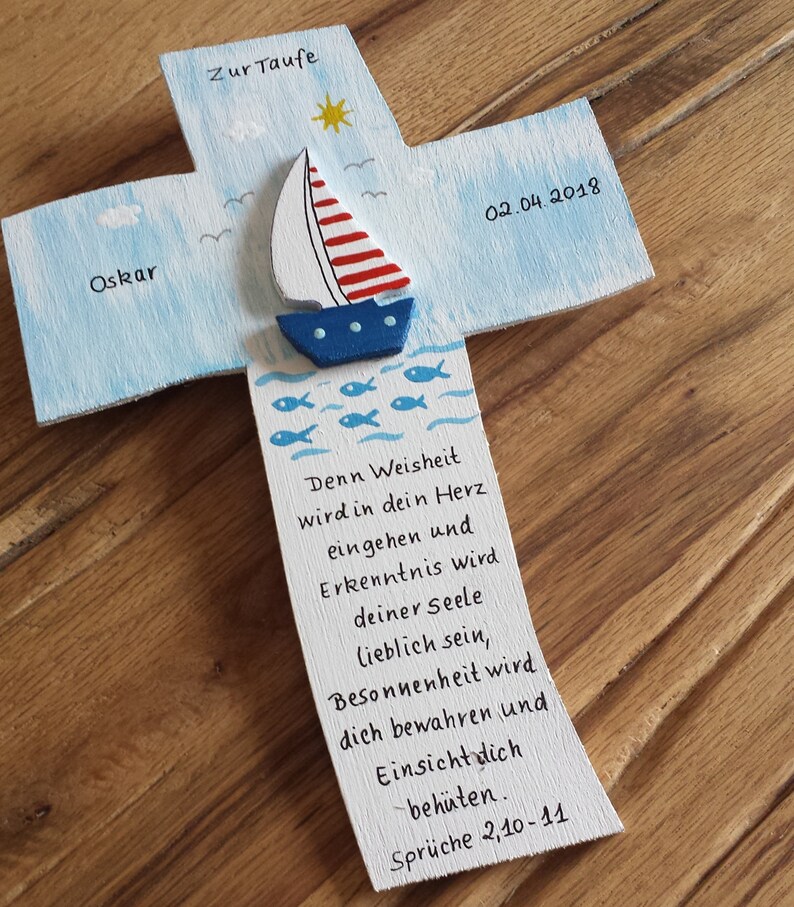 Zur Taufe
Oskar
02.04.2018
Denn Weisheit
wird in dein Herz
eingehen und
Erkenntnis wird
deiner Seele
lieblich sein,
Besonnenheit wird
dich bewahren und
Einsicht dich
behüten.
Sprüche 2,10-11